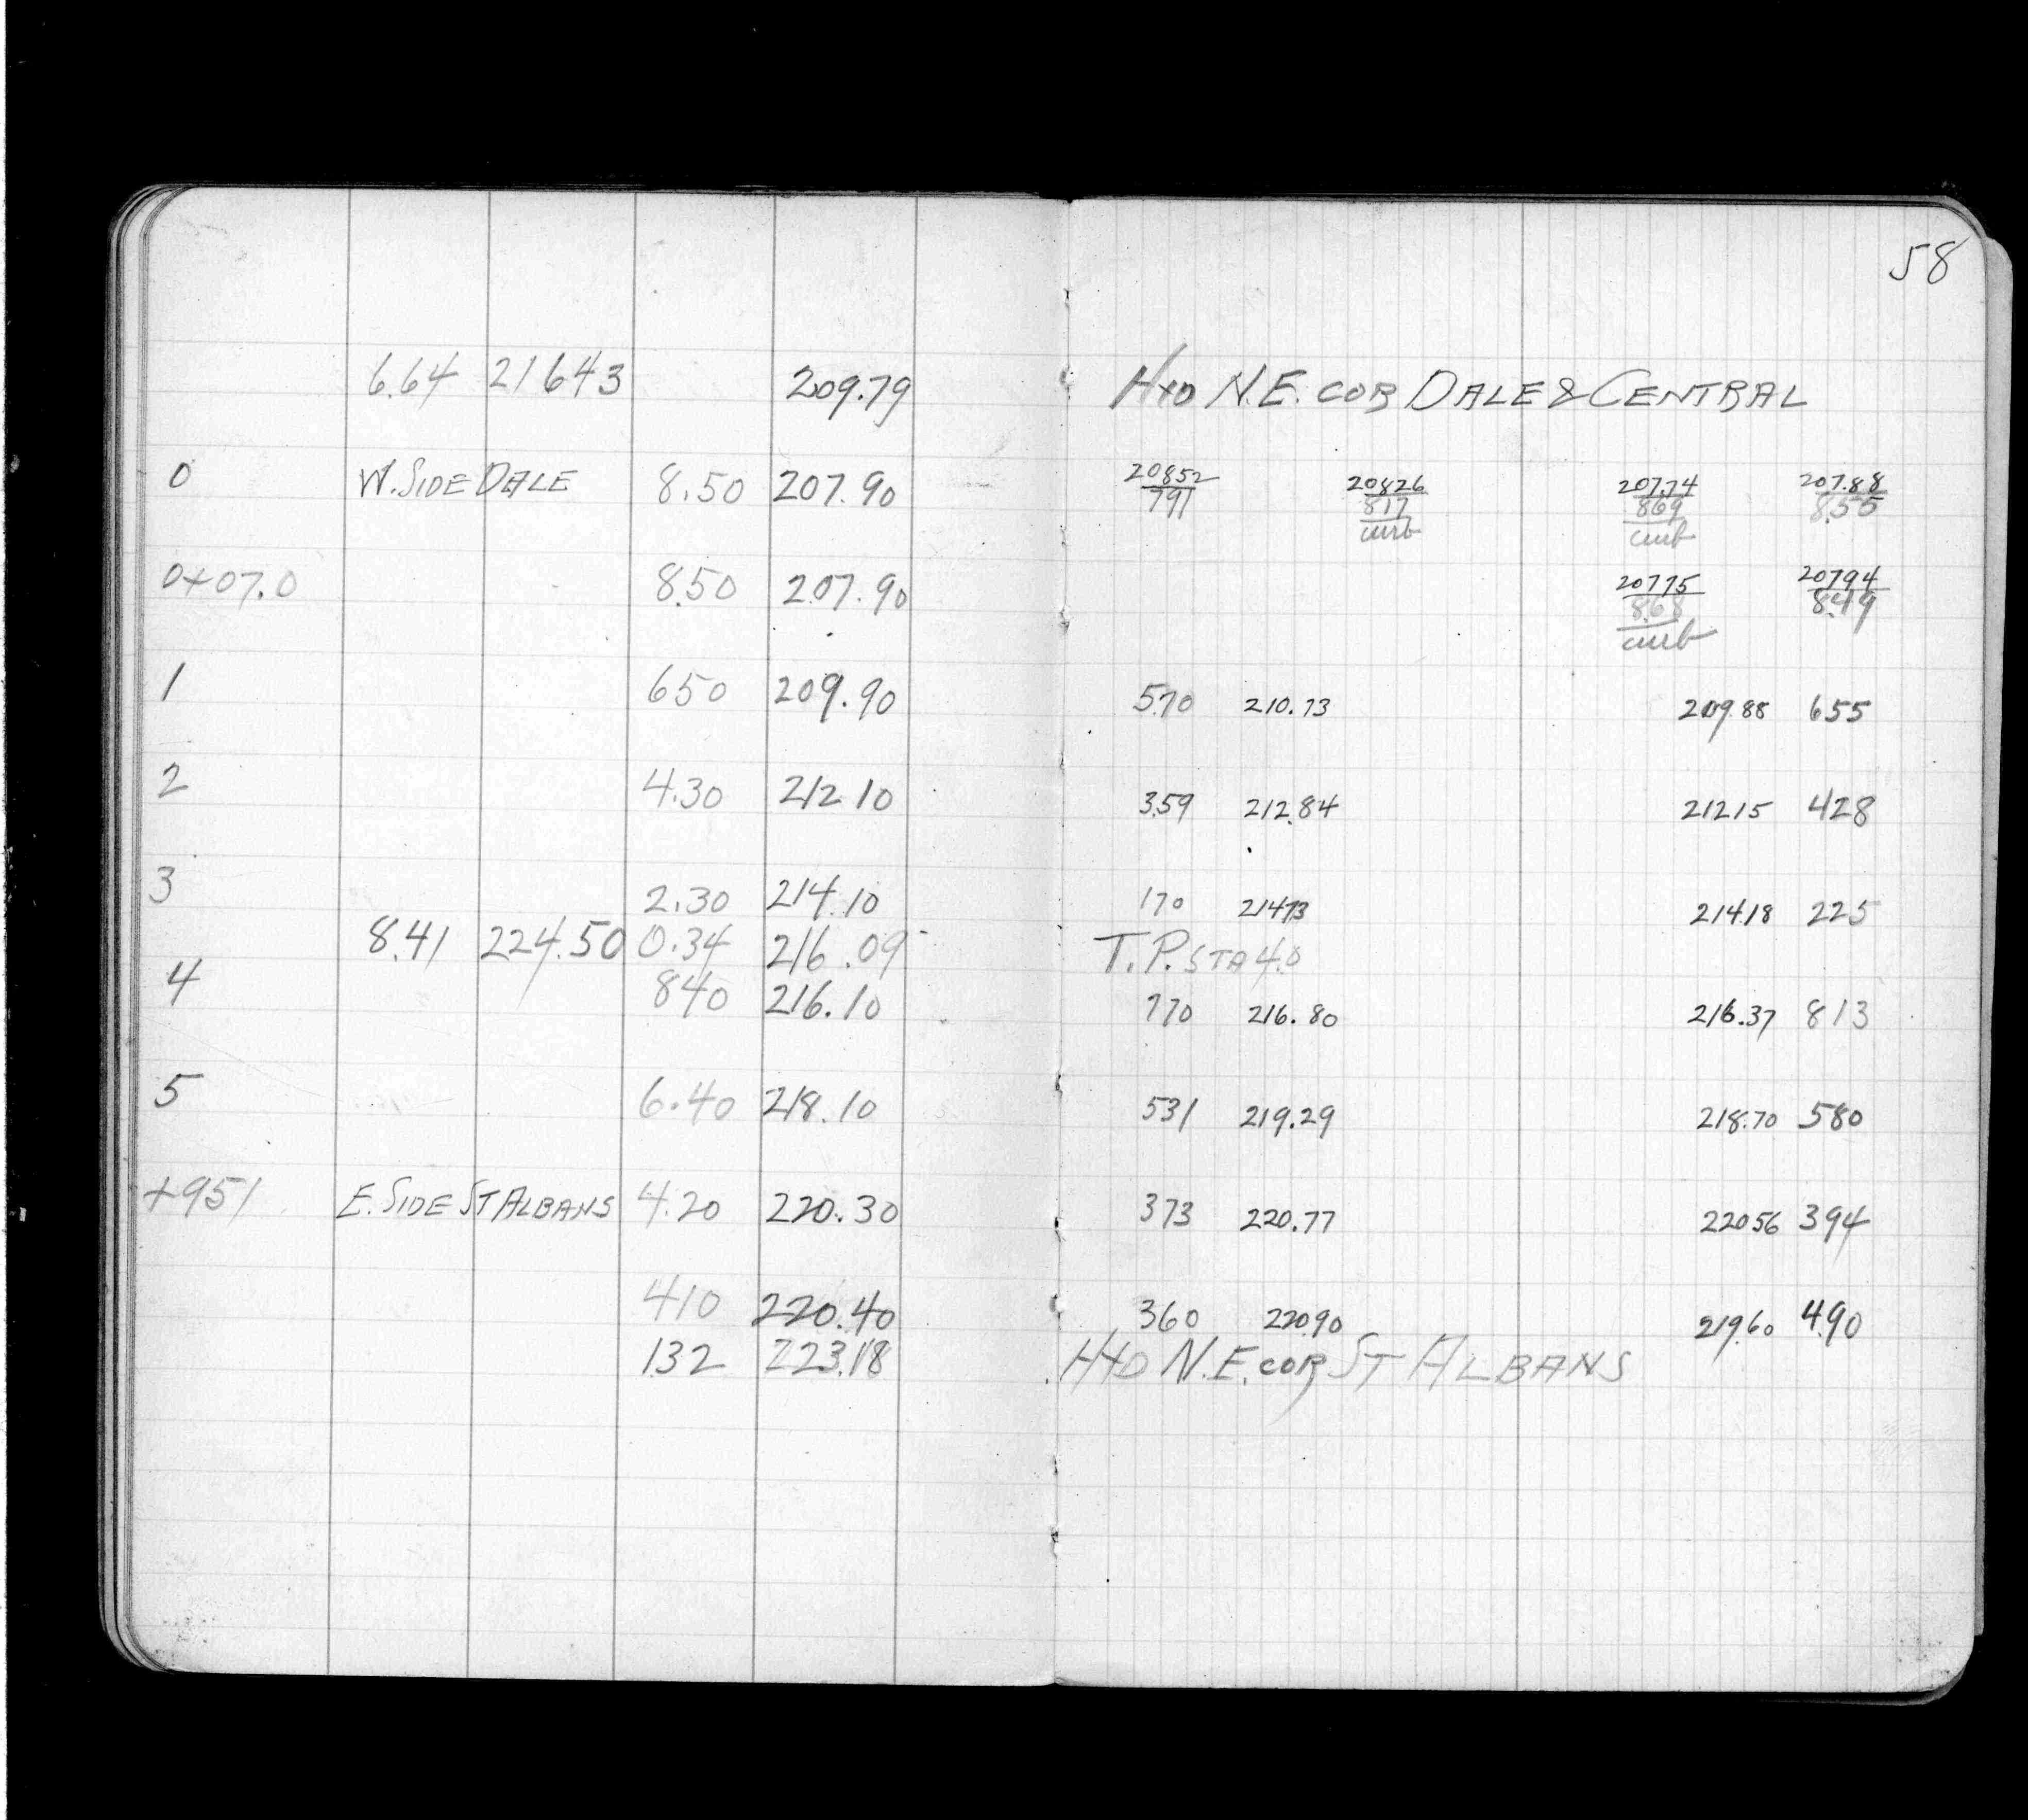 58
6.64 21643 209.79 Hyd N.E. COR DALE & CENTRAL
0 W. SIDE DALE 8.50 207.90 20852 20826 207.74 207.88
791 817 869 8.55
curb curb
0+07.0 8.50 207.90 20775 20794
8.68 8.49
curb
1 650 209.90 5.70 210.73 209.88 655
2 4.30 212 10 3.59 212.84 21215 428
3 2.30 214.10 170 21473 21418 225
8.41 224.50 0.34 216.09 T.P. STA 4.0
4 840 216.10 770 216.80 216.37 813
5 6.40 218.10 531 219.29 218.70 580
+951 E. SIDE ST ALBANS 4.20 220.30 373 220.77 22056 394
410 220.40 360 22090 219.60 4.90
132 223.18 HYD N.E. COR ST ALBANS